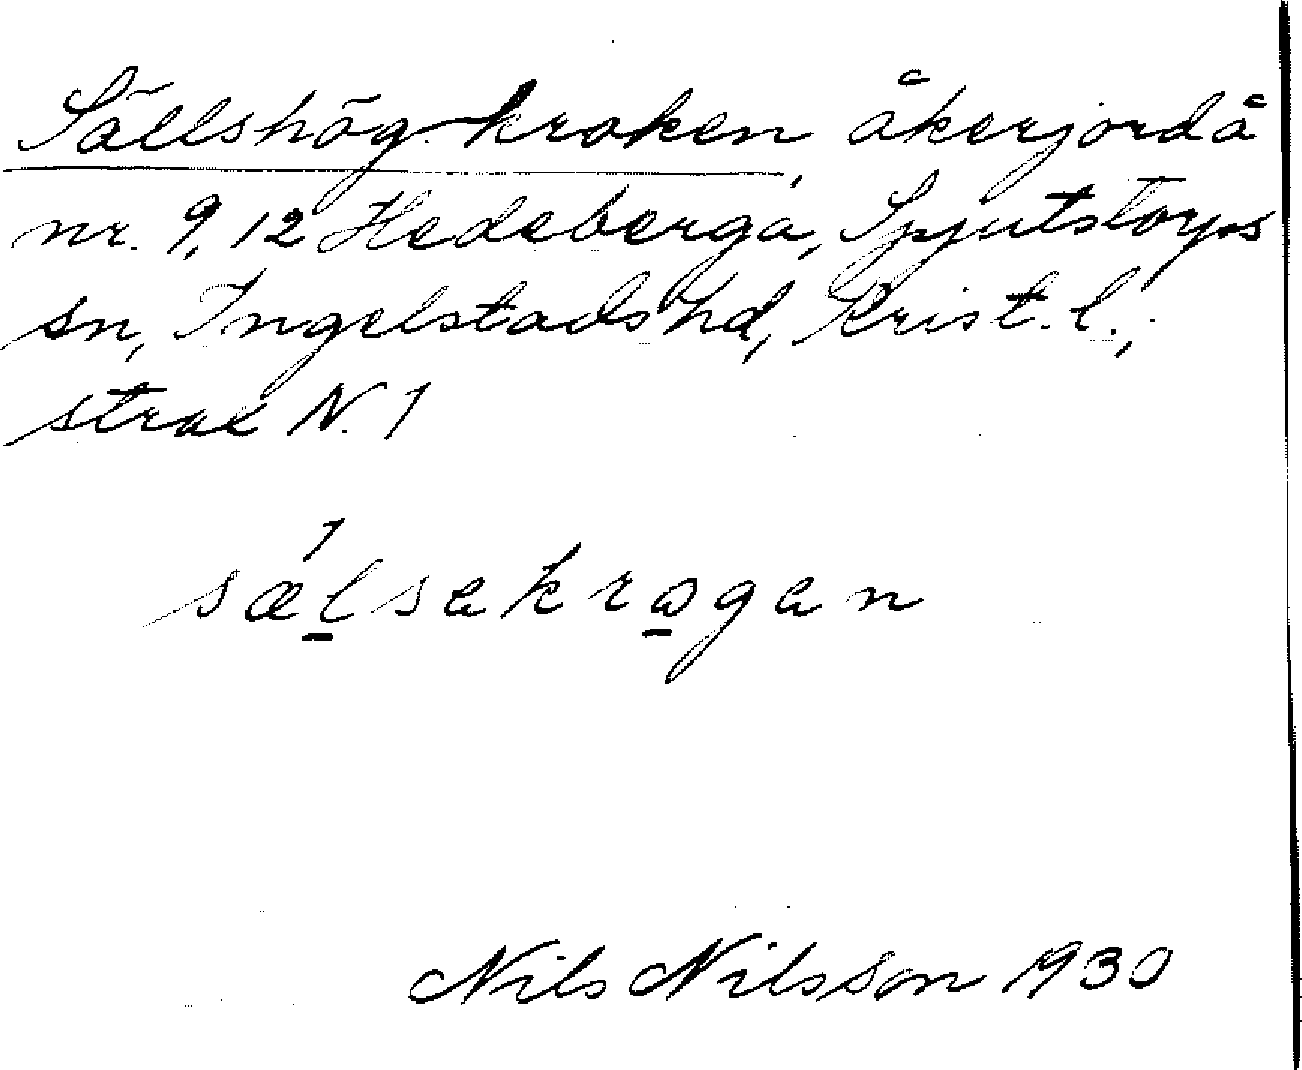 Sällshög-kroken, åkerjord å
nr. 9, 12 Hedeberga, Spjutstorps
sn, Ingelstads hd, Krist. l.,
strax N. 1
sæ̍l̠sekrɷ̠gen
Nils Nilsson 1930